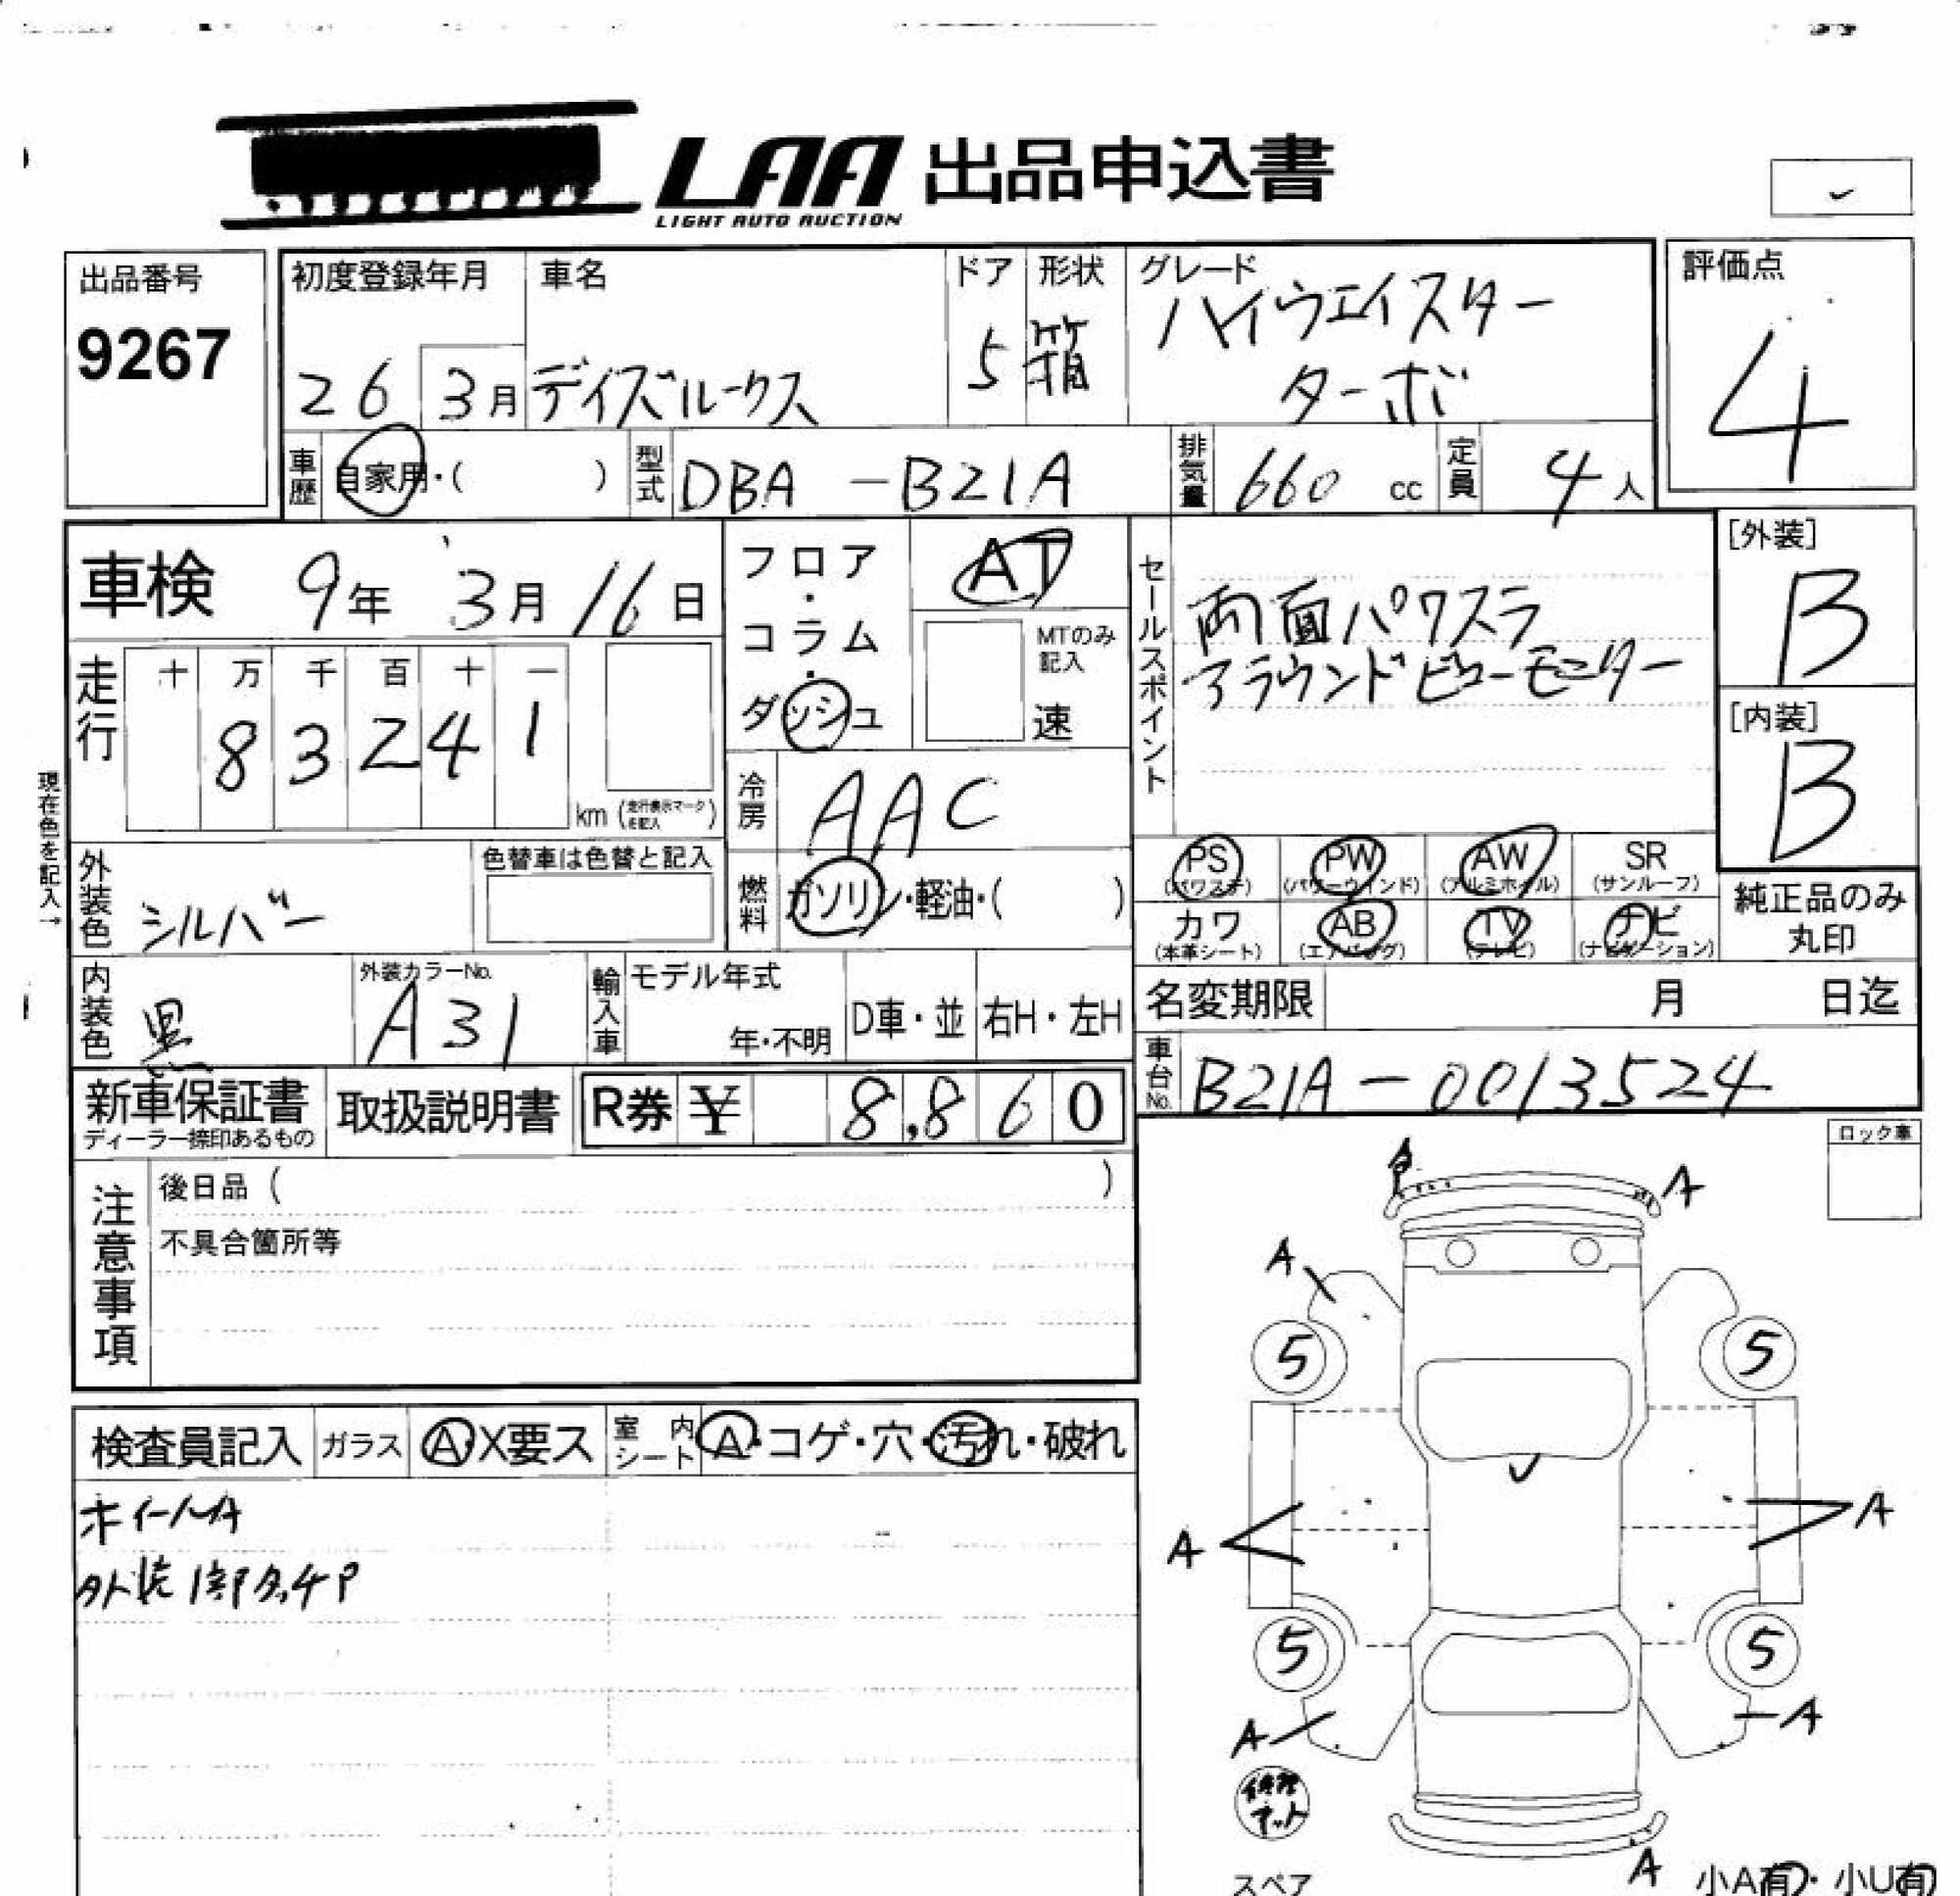 LAA 出品申込書
LIGHT AUTO AUCTION
出品番号
9267
初度登録年月
26 3月
車名
デイズルークス
ドア
5
形状
箱
グレード
ハイウェイスター
ターボ
評価点
4
車歴 自家用・( )
型式 DBA-B21A
排気量 660 cc
定員 4人
車検 9年 3月 16日
走行
十 万 千 百 十 一
8 3 2 4 1
km (走行表示マークを記入)
フロア
・
コラム
・
ダッシュ
AT
MTのみ
記入
速
セールスポイント
両面パワスラ
アラウンドビューモニター
[外装]
B
[内装]
B
現在色を記入→
冷房 AAC
燃料 ガソリン・軽油・( )
外装色 シルバー
色替車は色替と記入
PS
(パワステ)
PW
(パワーウインド)
AW
(アルミホイル)
SR
(サンルーフ)
カワ
(本革シート)
AB
(エアバッグ)
TV
(テレビ)
ナビ
(ナビゲーション)
純正品のみ
丸印
内装色 黒
外装カラーNo.
A31
輸入車
モデル年式
年・不明
D車・並
右H・左H
名変期限 月 日迄
車台No. B21A-0013524
新車保証書
ディーラー捺印あるもの
取扱説明書
R券 ¥ 8,860
ロック車
注意事項
後日品 ( )
不具合箇所等
検査員記入
ガラス A・X要ス
室内シート A・コゲ・穴・汚れ・破れ
ホイールA
外装1部タッチP
A
A
A
5
5
A
A
5
5
A
A
修理
キット
スペア
A
小A有・小U有